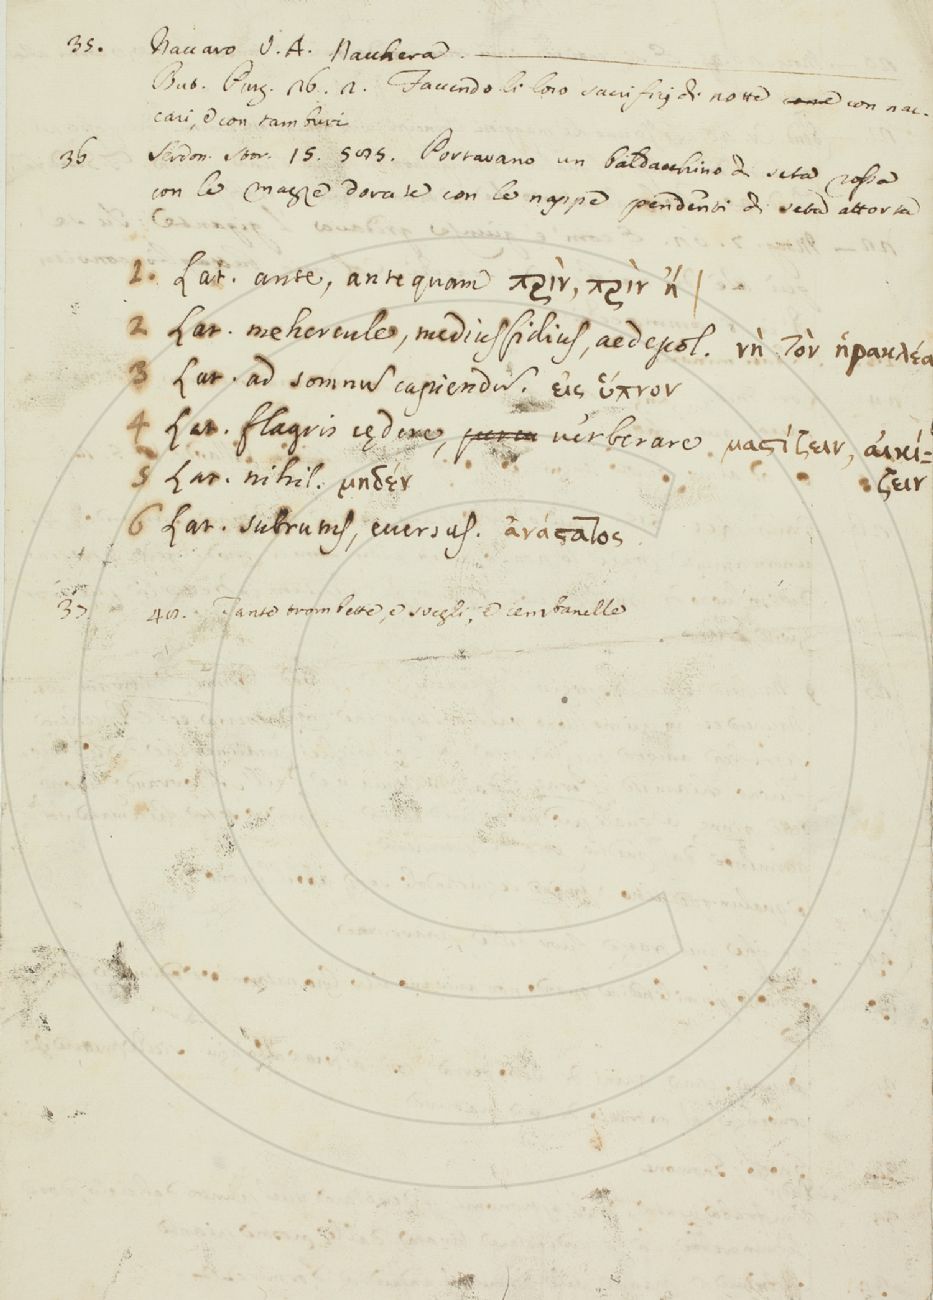 35. Naccaro V. A. Nacchera
But. Purg. 26. 2. Facendo li loro sacrificj di notte con nac-
cari, e con tamburi
36 Serdon. Stor. 15. 595. Portavano un baldacchino di seta rossa
con le mazze dorate con le nappe pendenti di seta attorta
1. Lat. ante, antequam πρὶν, πρὶν ἢ
2 Lat. mehercule, mediusfidius, aedepol. νὴ τὸν ἡρακλέα
3 Lat. ad somnum capiendum. εἰς ὕπνον
4 Lat. flagris cędere, verberare μαςίζειν, αἰκί=
ζειν
5 Lat. nihil. μηδέν
6 Lat. subrutus, eversus. ἀνάςατος
37. 42. Tante trombette, e svegli, e cembanelle